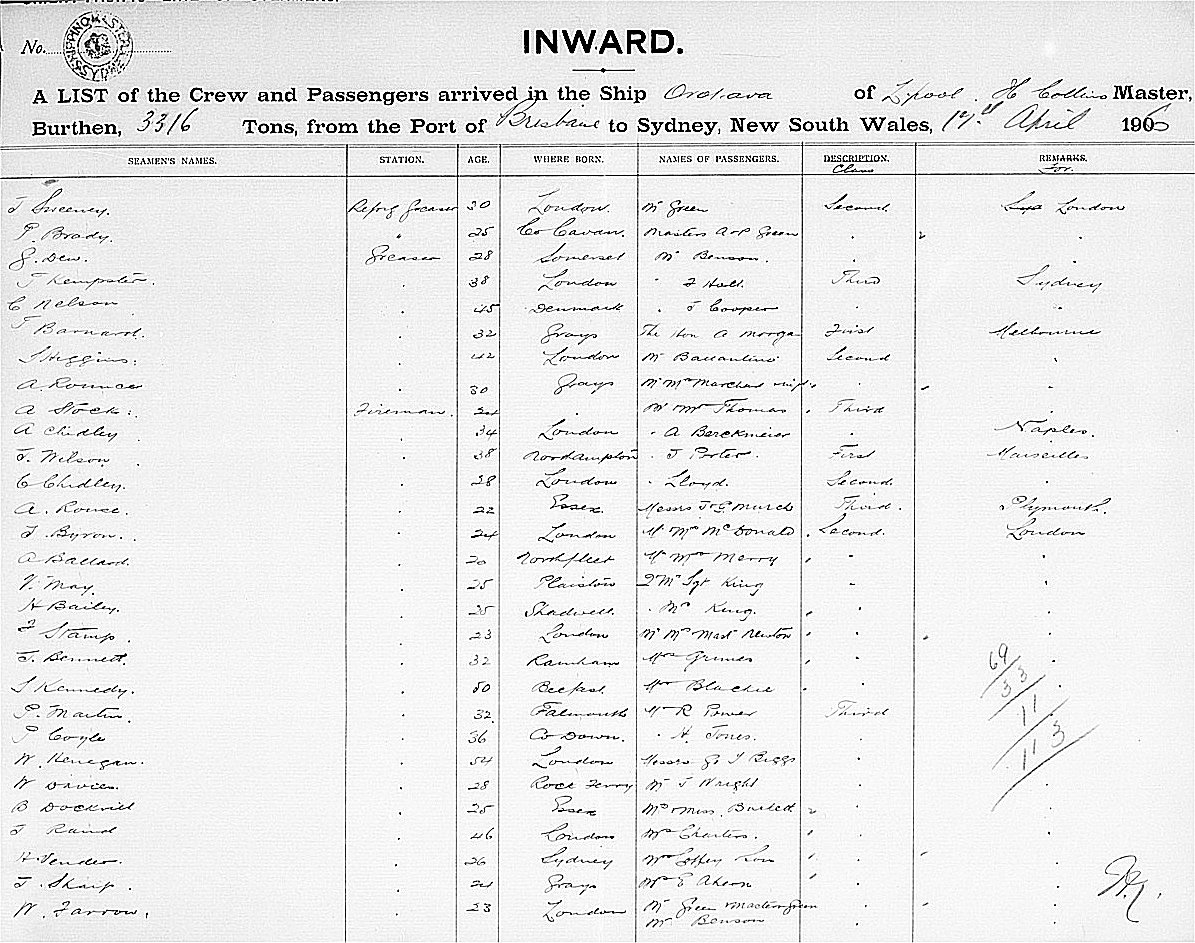 INWARD.
No.
SHIPPING MASTER SYDNEY
A LIST of the Crew and Passengers arrived in the Ship Orotava of L'pool. H Collins Master,
Burthen, 3316 Tons, from the Port of Brisbane to Sydney, New South Wales, 17th April 1906
SEAMEN'S NAMES. STATION. AGE. WHERE BORN. NAMES OF PASSENGERS. DESCRIPTION. REMARKS.
Class For.
J Sweeney. Refrig Greaser 30 London. Mr Green Second London
P. Brady. " 25 Co Cavan. Masters A & P Green . .
G. Dew. Greaser 28 Somerset Mr Benson. .
J Kempster. . 38 London " F Hall Third Sydney
C Nelson . 45 Denmark " J Cooper . "
J Barnard. . 32 Grays The Hon A Morgan First Melbourne
J Higgins. . 42 London Mr Ballantine Second "
A Rounce . 30 Grays Mr Mrs Marchant . .
A Stock. Fireman. 24 . Mr Mrs Thomas . Third .
A Chidley . 34 London " A Berckmeier . Naples.
J. Wilson . 38 Northampton " J Porter. First Marseilles
C Chidley. . 28 London " Lloyd. Second .
A. Rouse. . 22 Essex. Messrs J & G Murch Third. Plymouth.
J. Byron. . 24 London Mr Mrs McDonald . Second. London
A Ballard. . 20 Northfleet Mr Mrs Merry . " "
V. May. . 25 Plaistow Q M Sgt King " .
H Bailey. . 25 Shadwell. " Mrs King. . . .
F Stamp. . 23 London Mr Mrs Mast Newton . . .
J. Bennett. . 32 Rainham Mrs Grimes . . 69
J Kennedy. . 50 Belfast. Mrs Blackie . . 33
P. Martin. . 32 Falmouth Mr R Power Third 11
P Coyle . 36 Co Down. " H. Jones. . 113
W. Kenegan. . 54 London Messrs G & J Biggs . .
W Davies. . 28 Rock Ferry Mr J Wright . .
B Dockrill . 25 Essex Mrs & Miss Burkett . .
J Raind . 46 London Mrs Charters. . . .
H. Vender. . 26 Sydney Mrs Son . . .
J. Sharp. . 24 Grays Mrs E Ahern . . .
W. Farrow. . 23 London Mr Green Master Green . .
Mr Benson . .